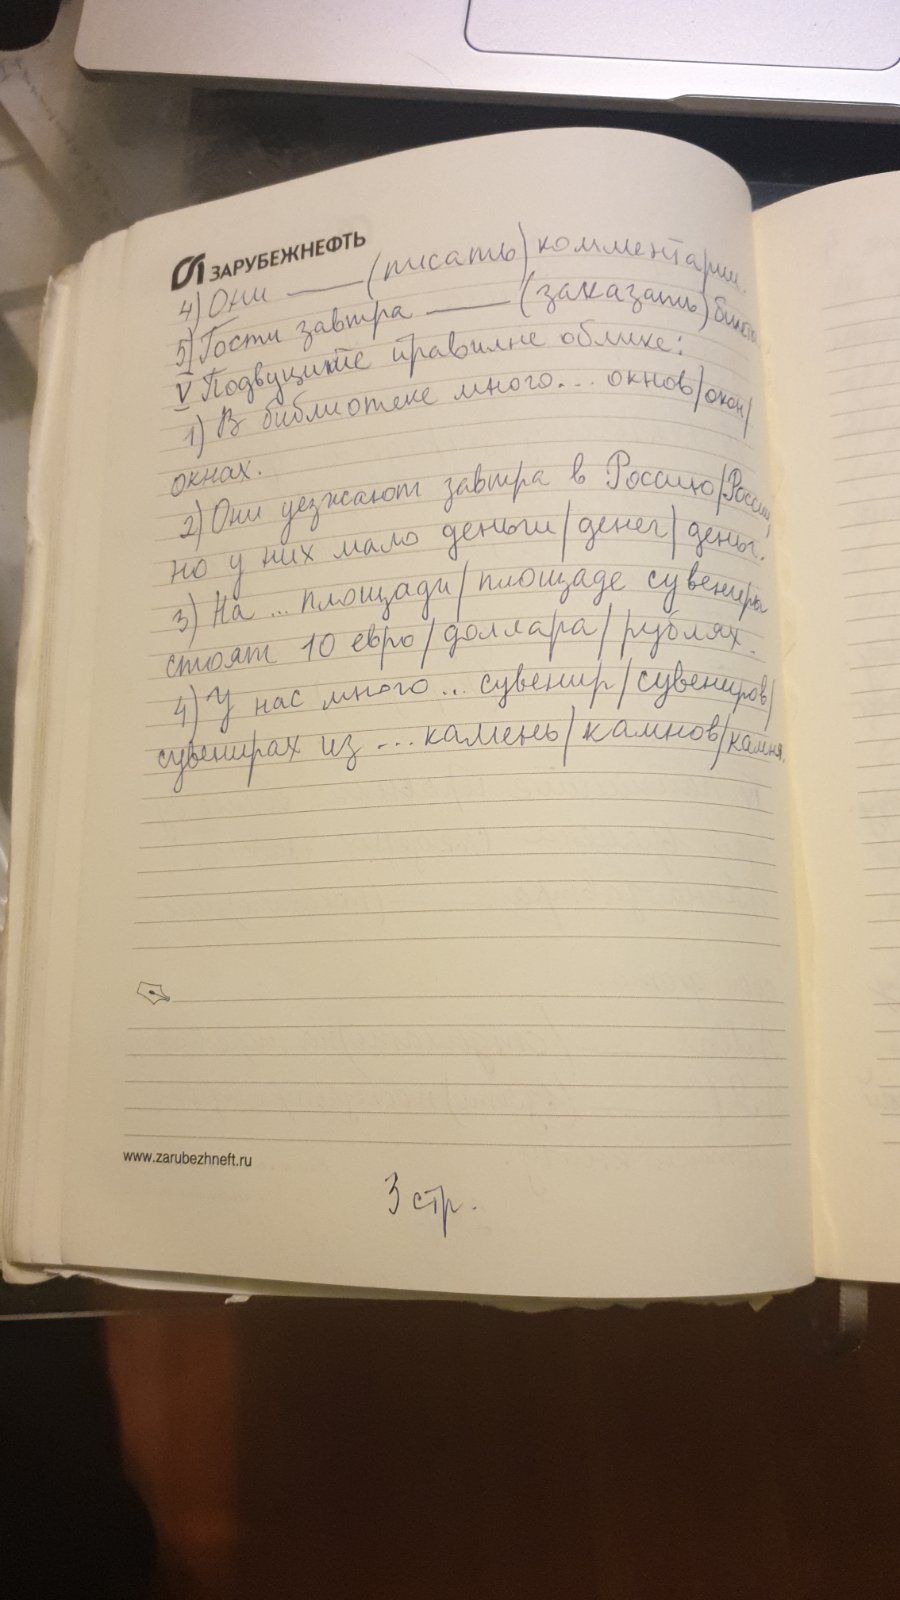 ЗАРУБЕЖНЕФТЬ
4) Они ____ (писать) комментарии.
5) Гости завтра ____ (заказать)
V Подвуците правилне облике:
1) В библиотеке много... окнов/окон/
окнах.
2) Они уезжают завтра в Россию/России,
но у них мало деньги/денег/деньг.
3) На ... площади/площаде сувениры
стоят 10 евро/доллара/рублях.
4) У нас много ... сувенир/сувениров/
сувенирах из ... камень/камнов/камня.
www.zarubezhneft.ru
3 стр.